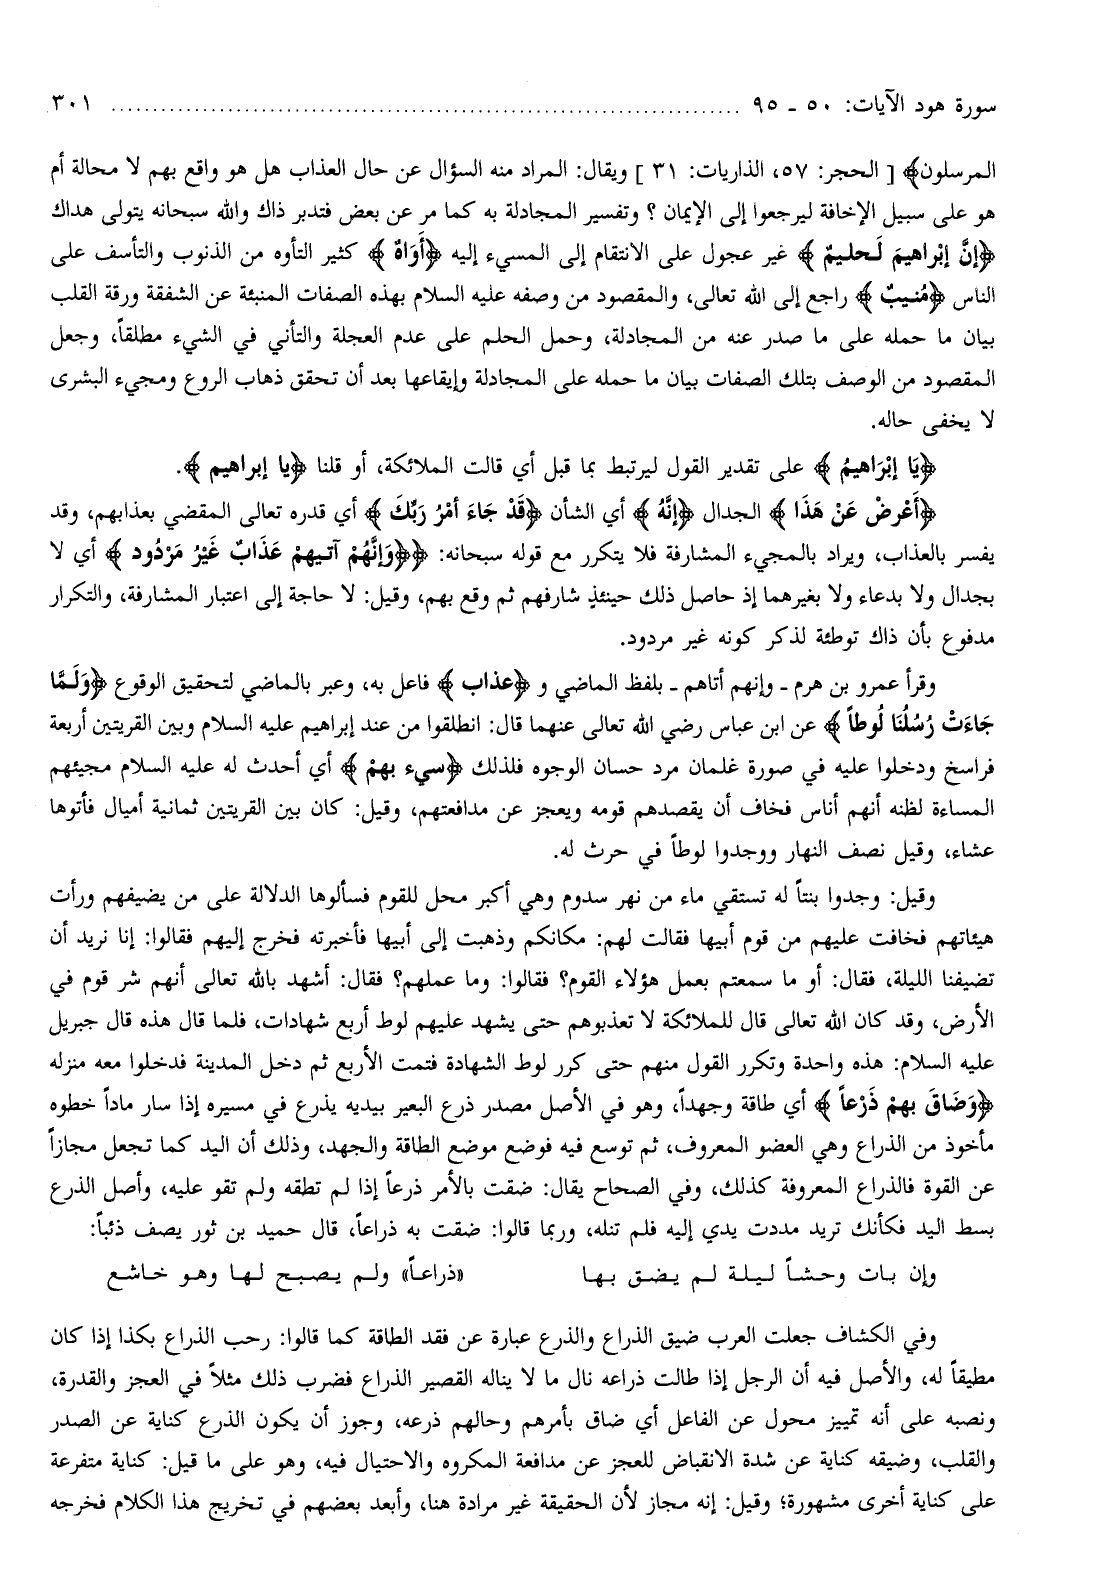 سورة هود الآيات: ٥٠ ـ ٩٥ ........................................ ٣٠١
المرسلون﴾ [ الحجر: ٥٧، الذاريات: ٣١ ] ويقال: المراد منه السؤال عن حال العذاب هل هو واقع بهم لا محالة أم
هو على سبيل الإخافة ليرجعوا إلى الإيمان ؟ وتفسير المجادلة به كما مر عن بعض فتدبر ذاك والله سبحانه يتولى هداك
﴿إنَّ إبْراهيمَ لَـحليـمٌ ﴾ غير عجول على الانتقام إلى المسيء إليه ﴿أَوَاهٌ ﴾ كثير التأوه من الذنوب والتأسف على
الناس ﴿مُنـيبٌ ﴾ راجع إلى الله تعالى، والمقصود من وصفه عليه السلام بهذه الصفات المنبئة عن الشفقة ورقة القلب
بيان ما حمله على ما صدر عنه من المجادلة، وحمل الحلم على عدم العجلة والتأني في الشيء مطلقاً، وجعل
المقصود من الوصف بتلك الصفات بيان ما حمله على المجادلة وإيقاعها بعد أن تحقق ذهاب الروع ومجيء البشرى
لا يخفى حاله.
﴿يَا إبْرَاهيمُ ﴾ على تقدير القول ليرتبط بما قبل أي قالت الملائكة، أو قلنا ﴿يا إبراهيم ﴾.
﴿أَعْرضْ عَنْ هَذَا ﴾ الجدال ﴿إنَّهُ ﴾ أي الشأن ﴿قَدْ جَاءَ أمْرُ رَبِّكَ ﴾ أي قدره تعالى المقضي بعذابهم، وقد
يفسر بالعذاب، ويراد بالمجيء المشارفة فلا يتكرر مع قوله سبحانه: ﴿﴿وَإنَّهُمْ آتـيهمْ عَذَابٌ غَيْرُ مَرْدُود ﴾ أي لا
بجدال ولا بدعاء ولا بغيرهما إذ حاصل ذلك حينئذٍ شارفهم ثم وقع بهم، وقيل: لا حاجة إلى اعتبار المشارفة، والتكرار
مدفوع بأن ذاك توطئة لذكر كونه غير مردود.
وقرأ عمرو بن هرم ـ وإنهم أتاهم ـ بلفظ الماضي و ﴿عذاب ﴾ فاعل به، وعبر بالماضي لتحقيق الوقوع ﴿وَلَـمَّا
جَاءَتْ رُسُلُنَا لُوطاً ﴾ عن ابن عباس رضي الله تعالى عنهما قال: انطلقوا من عند إبراهيم عليه السلام وبين القريتين أربعة
فراسخ ودخلوا عليه في صورة غلمان مرد حسان الوجوه فلذلك ﴿سيء بهمْ ﴾ أي أحدث له عليه السلام مجيئهم
المساءة لظنه أنهم أناس فخاف أن يقصدهم قومه ويعجز عن مدافعتهم، وقيل: كان بين القريتين ثمانية أميال فأتوها
عشاء، وقيل نصف النهار ووجدوا لوطاً في حرث له.
وقيل: وجدوا بنتاً له تستقي ماء من نهر سدوم وهي أكبر محل للقوم فسألوها الدلالة على من يضيفهم ورأت
هيئاتهم فخافت عليهم من قوم أبيها فقالت لهم: مكانكم وذهبت إلى أبيها فأخبرته فخرج إليهم فقالوا: إنا نريد أن
تضيفنا الليلة، فقال: أو ما سمعتم بعمل هؤلاء القوم؟ فقالوا: وما عملهم؟ فقال: أشهد بالله تعالى أنهم شر قوم في
الأرض، وقد كان الله تعالى قال للملائكة لا تعذبوهم حتى يشهد عليهم لوط أربع شهادات، فلما قال هذه قال جبريل
عليه السلام: هذه واحدة وتكرر القول منهم حتى كرر لوط الشهادة فتمت الأربع ثم دخل المدينة فدخلوا معه منزله
﴿وَضَاقَ بهمْ ذَرْعاً ﴾ أي طاقة وجهداً، وهو في الأصل مصدر ذرع البعير بيديه يذرع في مسيره إذا سار ماداً خطوه
مأخوذ من الذراع وهي العضو المعروف، ثم توسع فيه فوضع موضع الطاقة والجهد، وذلك أن اليد كما تجعل مجازاً
عن القوة فالذراع المعروفة كذلك، وفي الصحاح يقال: ضقت بالأمر ذرعاً إذا لم تطقه ولم تقو عليه، وأصل الذرع
بسط اليد فكأنك تريد مددت يدي إليه فلم تنله، وربما قالوا: ضقت به ذراعاً، قال حميد بن ثور يصف ذئباً:
وإن بات وحشاً ليلة لم يضق بها «ذراعاً» ولم يصبح لها وهو خاشع
وفي الكشاف جعلت العرب ضيق الذراع والذرع عبارة عن فقد الطاقة كما قالوا: رحب الذراع بكذا إذا كان
مطيقاً له، والأصل فيه أن الرجل إذا طالت ذراعه نال ما لا يناله القصير الذراع فضرب ذلك مثلاً في العجز والقدرة،
ونصبه على أنه تمييز محول عن الفاعل أي ضاق بأمرهم وحالهم ذرعه، وجوز أن يكون الذرع كناية عن الصدر
والقلب، وضيقه كناية عن شدة الانقباض للعجز عن مدافعة المكروه والاحتيال فيه، وهو على ما قيل: كناية متفرعة
على كناية أخرى مشهورة؛ وقيل: إنه مجاز لأن الحقيقة غير مرادة هنا، وأبعد بعضهم في تخريج هذا الكلام فخرجه